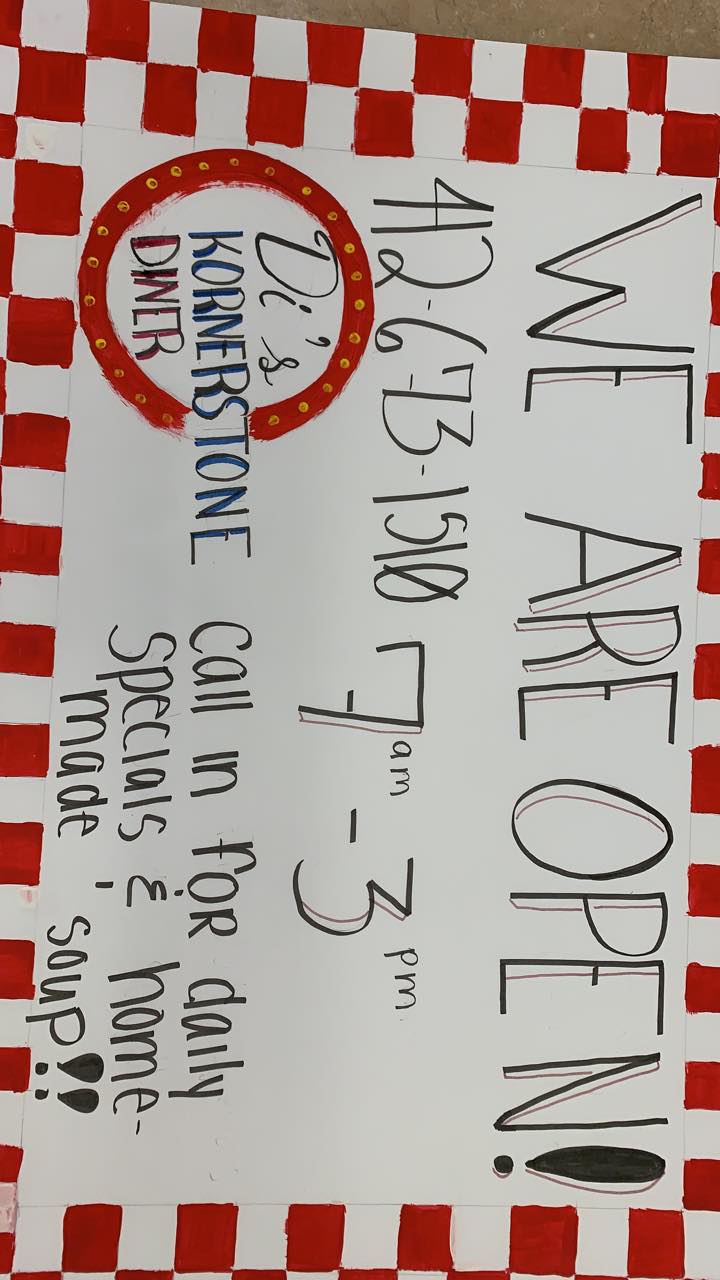 WE ARE OPEN!
412-673-1510
7am - 3pm
Di's
KORNERSTONE
DINER
Call in FOR daily
Specials & home-
made soup!!